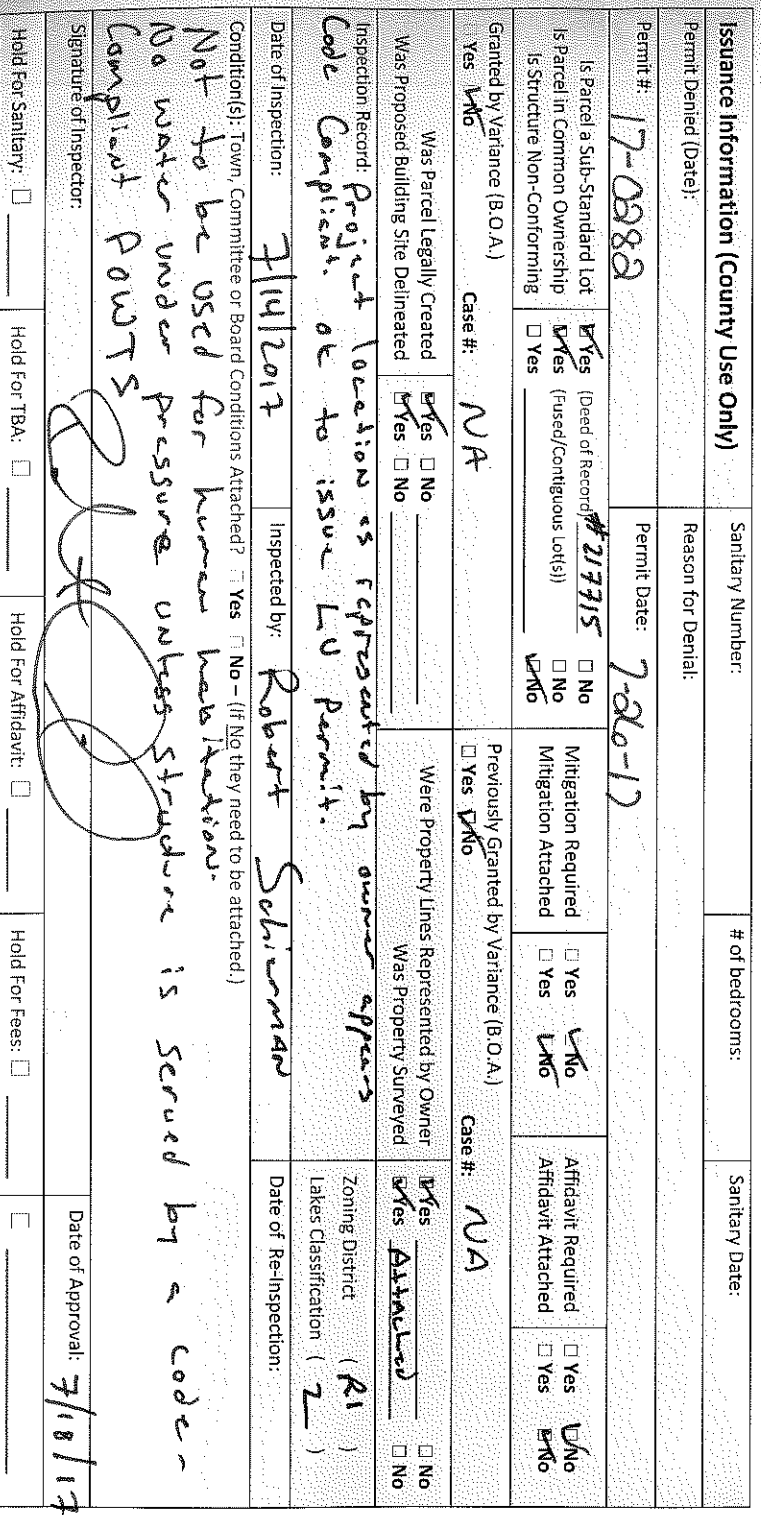 Issuance Information (County Use Only) Sanitary Number: # of bedrooms: Sanitary Date:
Permit Denied (Date): Reason for Denial:
Permit #: 17-0282 Permit Date: 7-26-17
Is Parcel a Sub-Standard Lot ☑ Yes (Deed of Record) #217715 ☐ No
Is Parcel in Common Ownership ☑ Yes (Fused/Contiguous Lot(s)) ☐ No
Is Structure Non-Conforming ☐ Yes ☑ No
Mitigation Required ☐ Yes ☑ No
Mitigation Attached ☐ Yes ☑ No
Affidavit Required ☐ Yes ☑ No
Affidavit Attached ☐ Yes ☑ No
Granted by Variance (B.O.A.)
☐ Yes ☑ No Case #: NA
Previously Granted by Variance (B.O.A.)
☐ Yes ☑ No Case #: NA
Was Parcel Legally Created ☑ Yes ☐ No
Was Proposed Building Site Delineated ☑ Yes ☐ No
Were Property Lines Represented by Owner ☑ Yes ☐ No
Was Property Surveyed ☑ Yes Attached ☐ No
Inspection Record: Project location as represented by owner appears
Code Compliant. ok to issue LU Permit.
Zoning District ( R1 )
Lakes Classification ( 2 )
Date of Inspection: 7/14/2017 Inspected by: Robert Schierman Date of Re-Inspection:
Condition(s): Town, Committee or Board Conditions Attached? ☐ Yes ☐ No – (If No they need to be attached.)
Not to be used for human habitation.
No water under pressure unless structure is served by a code-
Compliant POWTS
Signature of Inspector: Date of Approval: 7/18/17
Hold For Sanitary: ☐ Hold For TBA: ☐ Hold For Affidavit: ☐ Hold For Fees: ☐ ☐